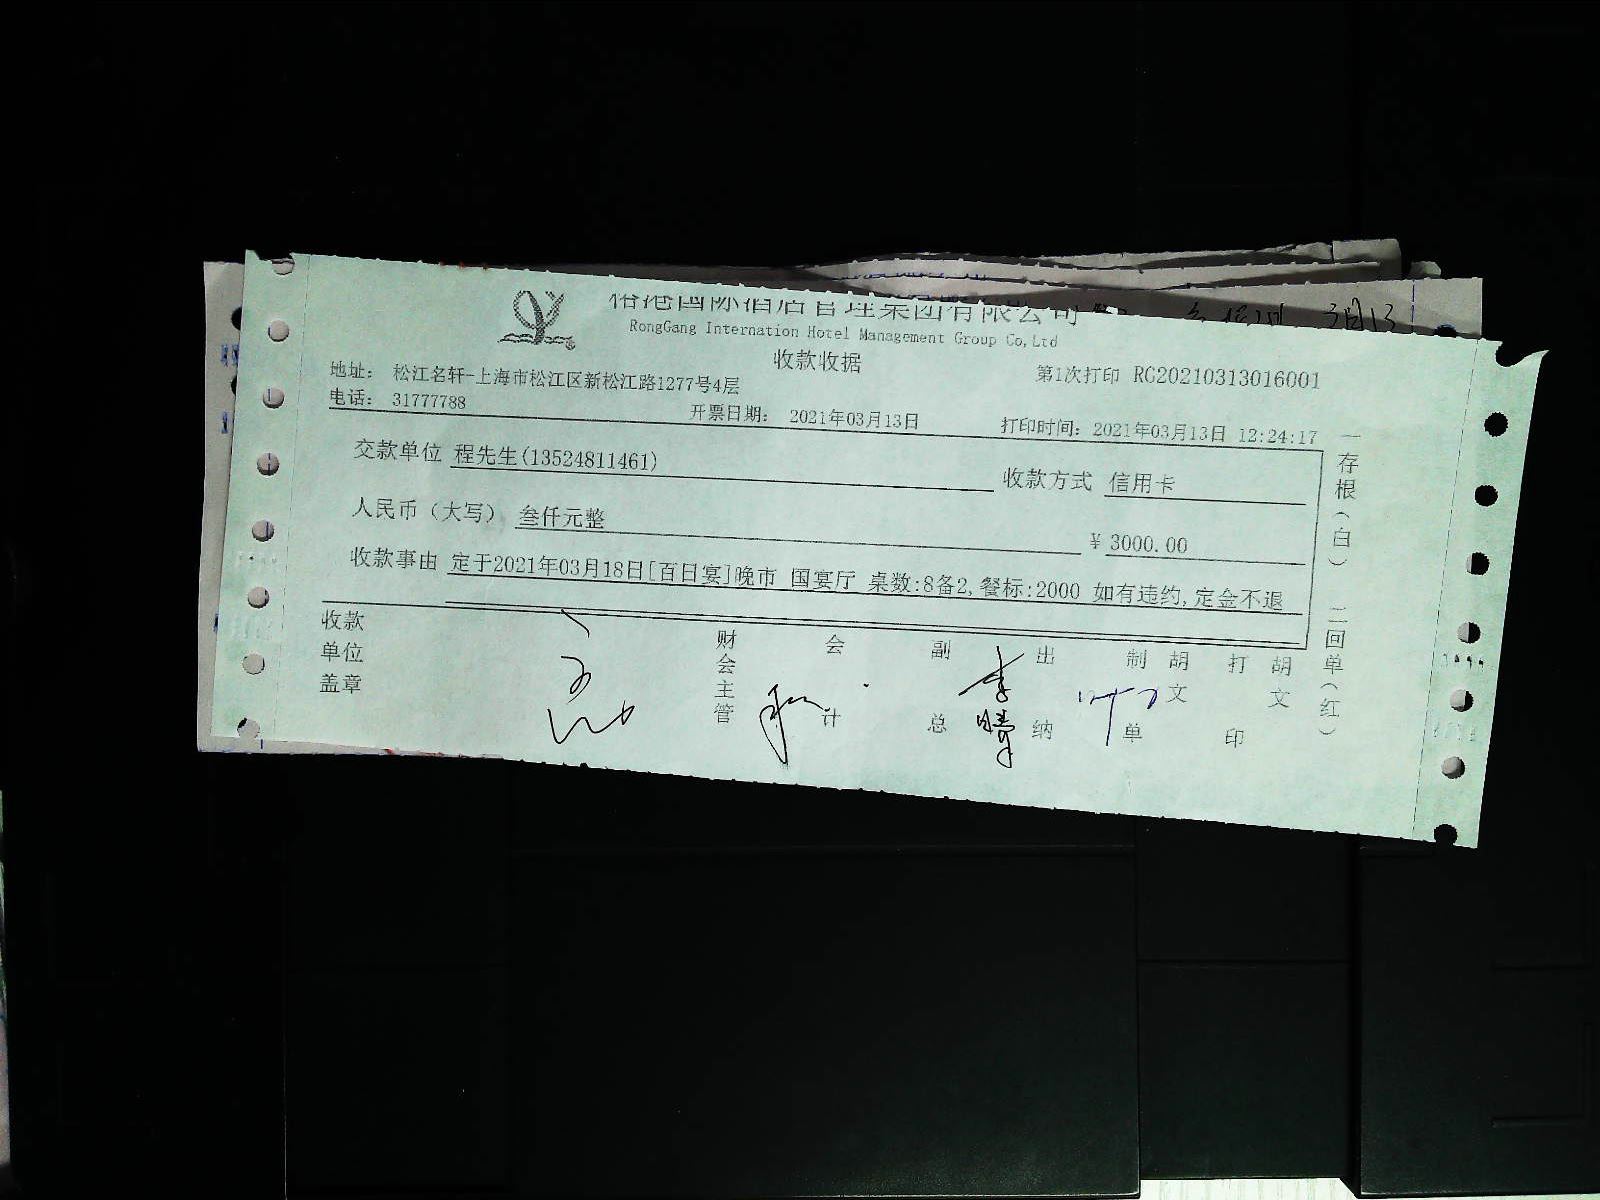 港国际酒店管理集团有限公司
RongGang Internation Hotel Management Group Co,Ltd
收款收据
地址: 松江名轩-上海市松江区新松江路1277号4层
第1次打印 RC20210313016001
电话: 31777788
开票日期: 2021年03月13日
打印时间: 2021年03月13日 12:24:17
交款单位 程先生(13524811461)
收款方式 信用卡
人民币(大写) 叁仟元整
¥ 3000.00
收款事由 定于2021年03月18日[百日宴]晚市 国宴厅 桌数:8备2,餐标:2000 如有违约,定金不退
一存根(白) 二回单(红)
收款单位盖章
财会主管
会计
副总
李
出纳
制单
胡文
打印
胡文
3月13